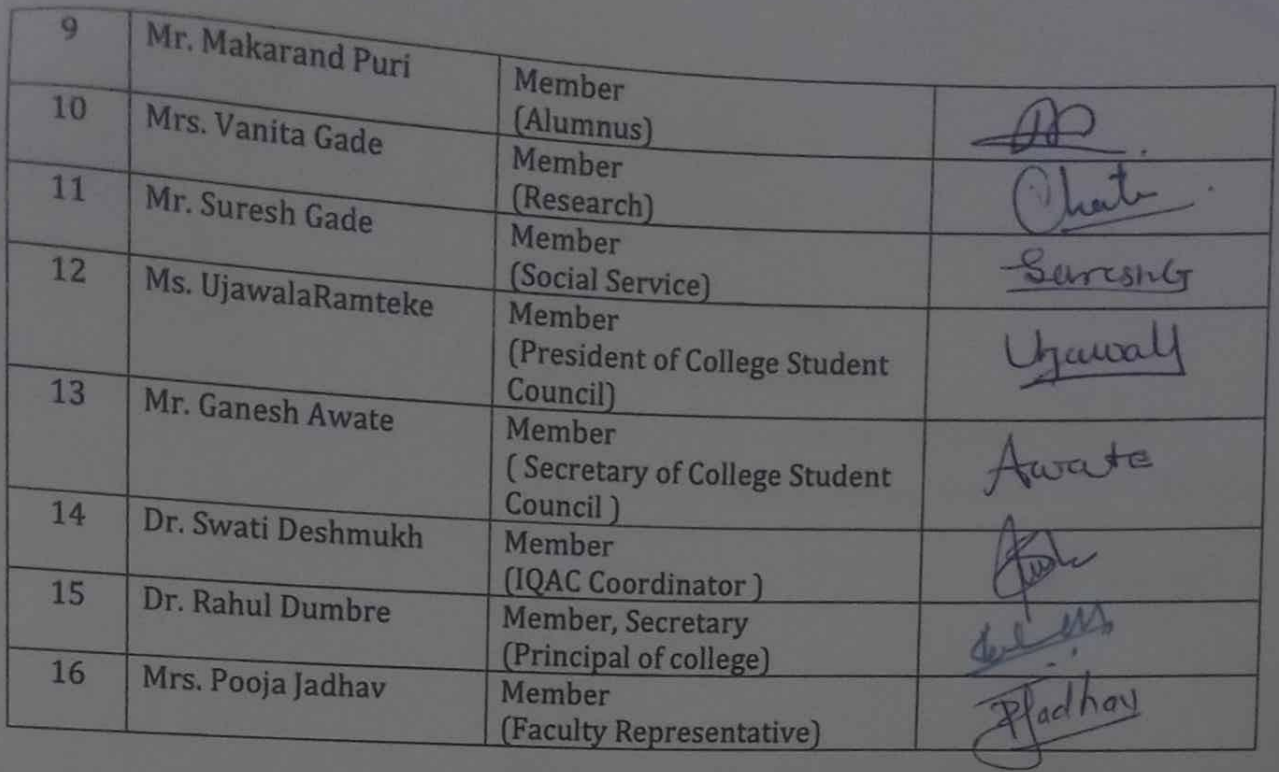 9 Mr. Makarand Puri Member
(Alumnus)
10 Mrs. Vanita Gade Member
(Research)
11 Mr. Suresh Gade Member
(Social Service) SureshG
12 Ms. UjawalaRamteke Member
(President of College Student
Council)
13 Mr. Ganesh Awate Member
( Secretary of College Student
Council ) Awate
14 Dr. Swati Deshmukh Member
(IQAC Coordinator )
15 Dr. Rahul Dumbre Member, Secretary
(Principal of college)
16 Mrs. Pooja Jadhav Member
(Faculty Representative) PJadhav